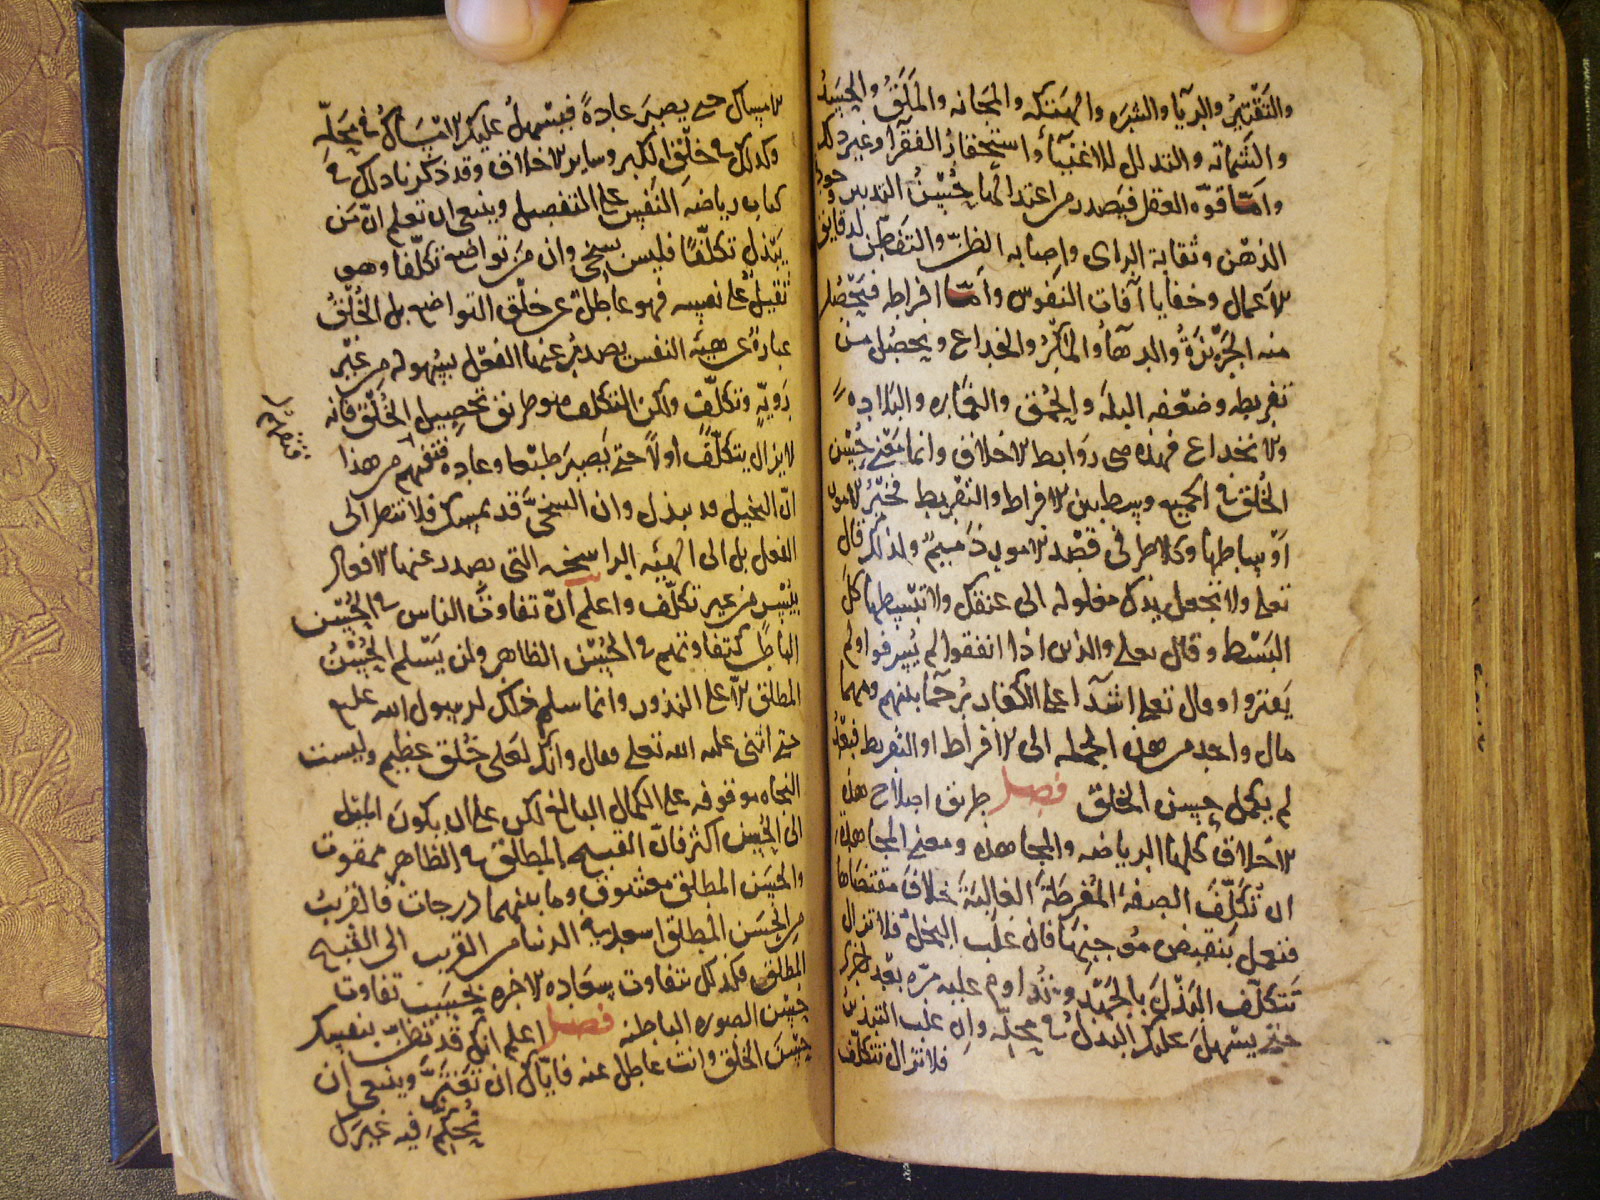 والتقتير والريا والشره والهتكه والمجانه والملق والحسد
والشماته والتذلل للاغنيا واستحقار الفقرا وغير ذلك
واما قوه العقل فيصدر من اعتدالها حسن التدبير وجودة
الذهن وثقابة الراى واصابه الظن والتفطن لدقايق
الاعمال وخفايا آفات النفوس واما افراطه فيحصل
منه الجربزة والدهآ والمكر والخداع ويحصل من
تفريطه وضعفه البله والحمق والغماره والبلاده
والانخداع فهذه هى روابط الاخلاق وانما يعنى حسن
الخلق فى الجميع وسط بين الافراط والتفريط فخير الامور
اوساطها وكلا طرفى قصد الامور ذميم ولذلك قال
تعلى ولا تجعل يدك مغلوله الى عنقك ولا تبسطها كل
البسط وقال تعلى والذين اذا انفقوا لم يسرفوا ولم
يقتروا وقال تعلى اشدآ على الكفار رحمآ بينهم ومهما
مال واحد من هذه الجمله الى الافراط او التفريط فبعد
لم يكمل حسن الخلق فصل طريق اصلاح هذه
الاخلاق كلها الرياضه والمجاهده ومعنى المجاهده
ان تكلف الصفه المفرطة الغالبة خلاف مقتضاها
فتعمل بنقيض موجبها فان غلب البخل فلا تزال
تتكلف البذل بالجهد وتداوم عليه مره بعد اخرى
حتى يسهل عليك البذل فى محله وان غلب التبذير
فلا تزال تتكلف
الامساك حتى يصير عادة فيسهل عليك الامساك فى محله
وكذلك فى خلق الكبر وساير الاخلاق وقد ذكرنا ذلك فى
كتاب رياضه النفس على التفصيل وينبغى ان تعلم ان من
يبذل تكلفا فليس بسخى وان من تواضع تكلفا وهو
ثقيل على نفسه فهو عاطل عن خلق التواضع بل الخلق
عبارة عن هيئه النفس يصدر عنها الفعل بسهوله من غير
روية وتكلف ولكن التكلف هو طريق تحصيل الخلق فانه
لا يزال يتكلف اولا حتى يصير طبعا وعاده فتفهم من هذا
ان البخيل قد يبذل وان السخى قد يمسك فلا تنظر الى
الفعل بل الى الهيئه الراسخه التى يصدر عنها الافعال
بيسر من غير تكلف واعلم ان تفاوت الناس فى الحسن
الباطن كتفاوتهم فى الحسن الظاهر ولن يسلم الحسن
المطلق الا على الندور وانما سلم ذلك لرسول الله عليه
حتى اثنى عليه الله تعلى وقال وانك لعلى خلق عظيم وليست
النجاه موقوفه على الكمال البالغ لكن على ان يكون الميل
الى الحسن اكثر فان القبيح المطلق فى الظاهر ممقوت
والحسن المطلق معشوق وما بينهما درجات فالقريب
من الحسن المطلق اسعد فى الدنيا من القريب الى القبيح
المطلق فكذلك تتفاوت سعاده الاخره بحسب تفاوت
حسن الصوره الباطنه فصل اعلم انك قد تظن بنفسك
حسن الخلق وانت عاطل عنه فاياك ان تغتر وينبغى ان
تحكم فيه غيرك